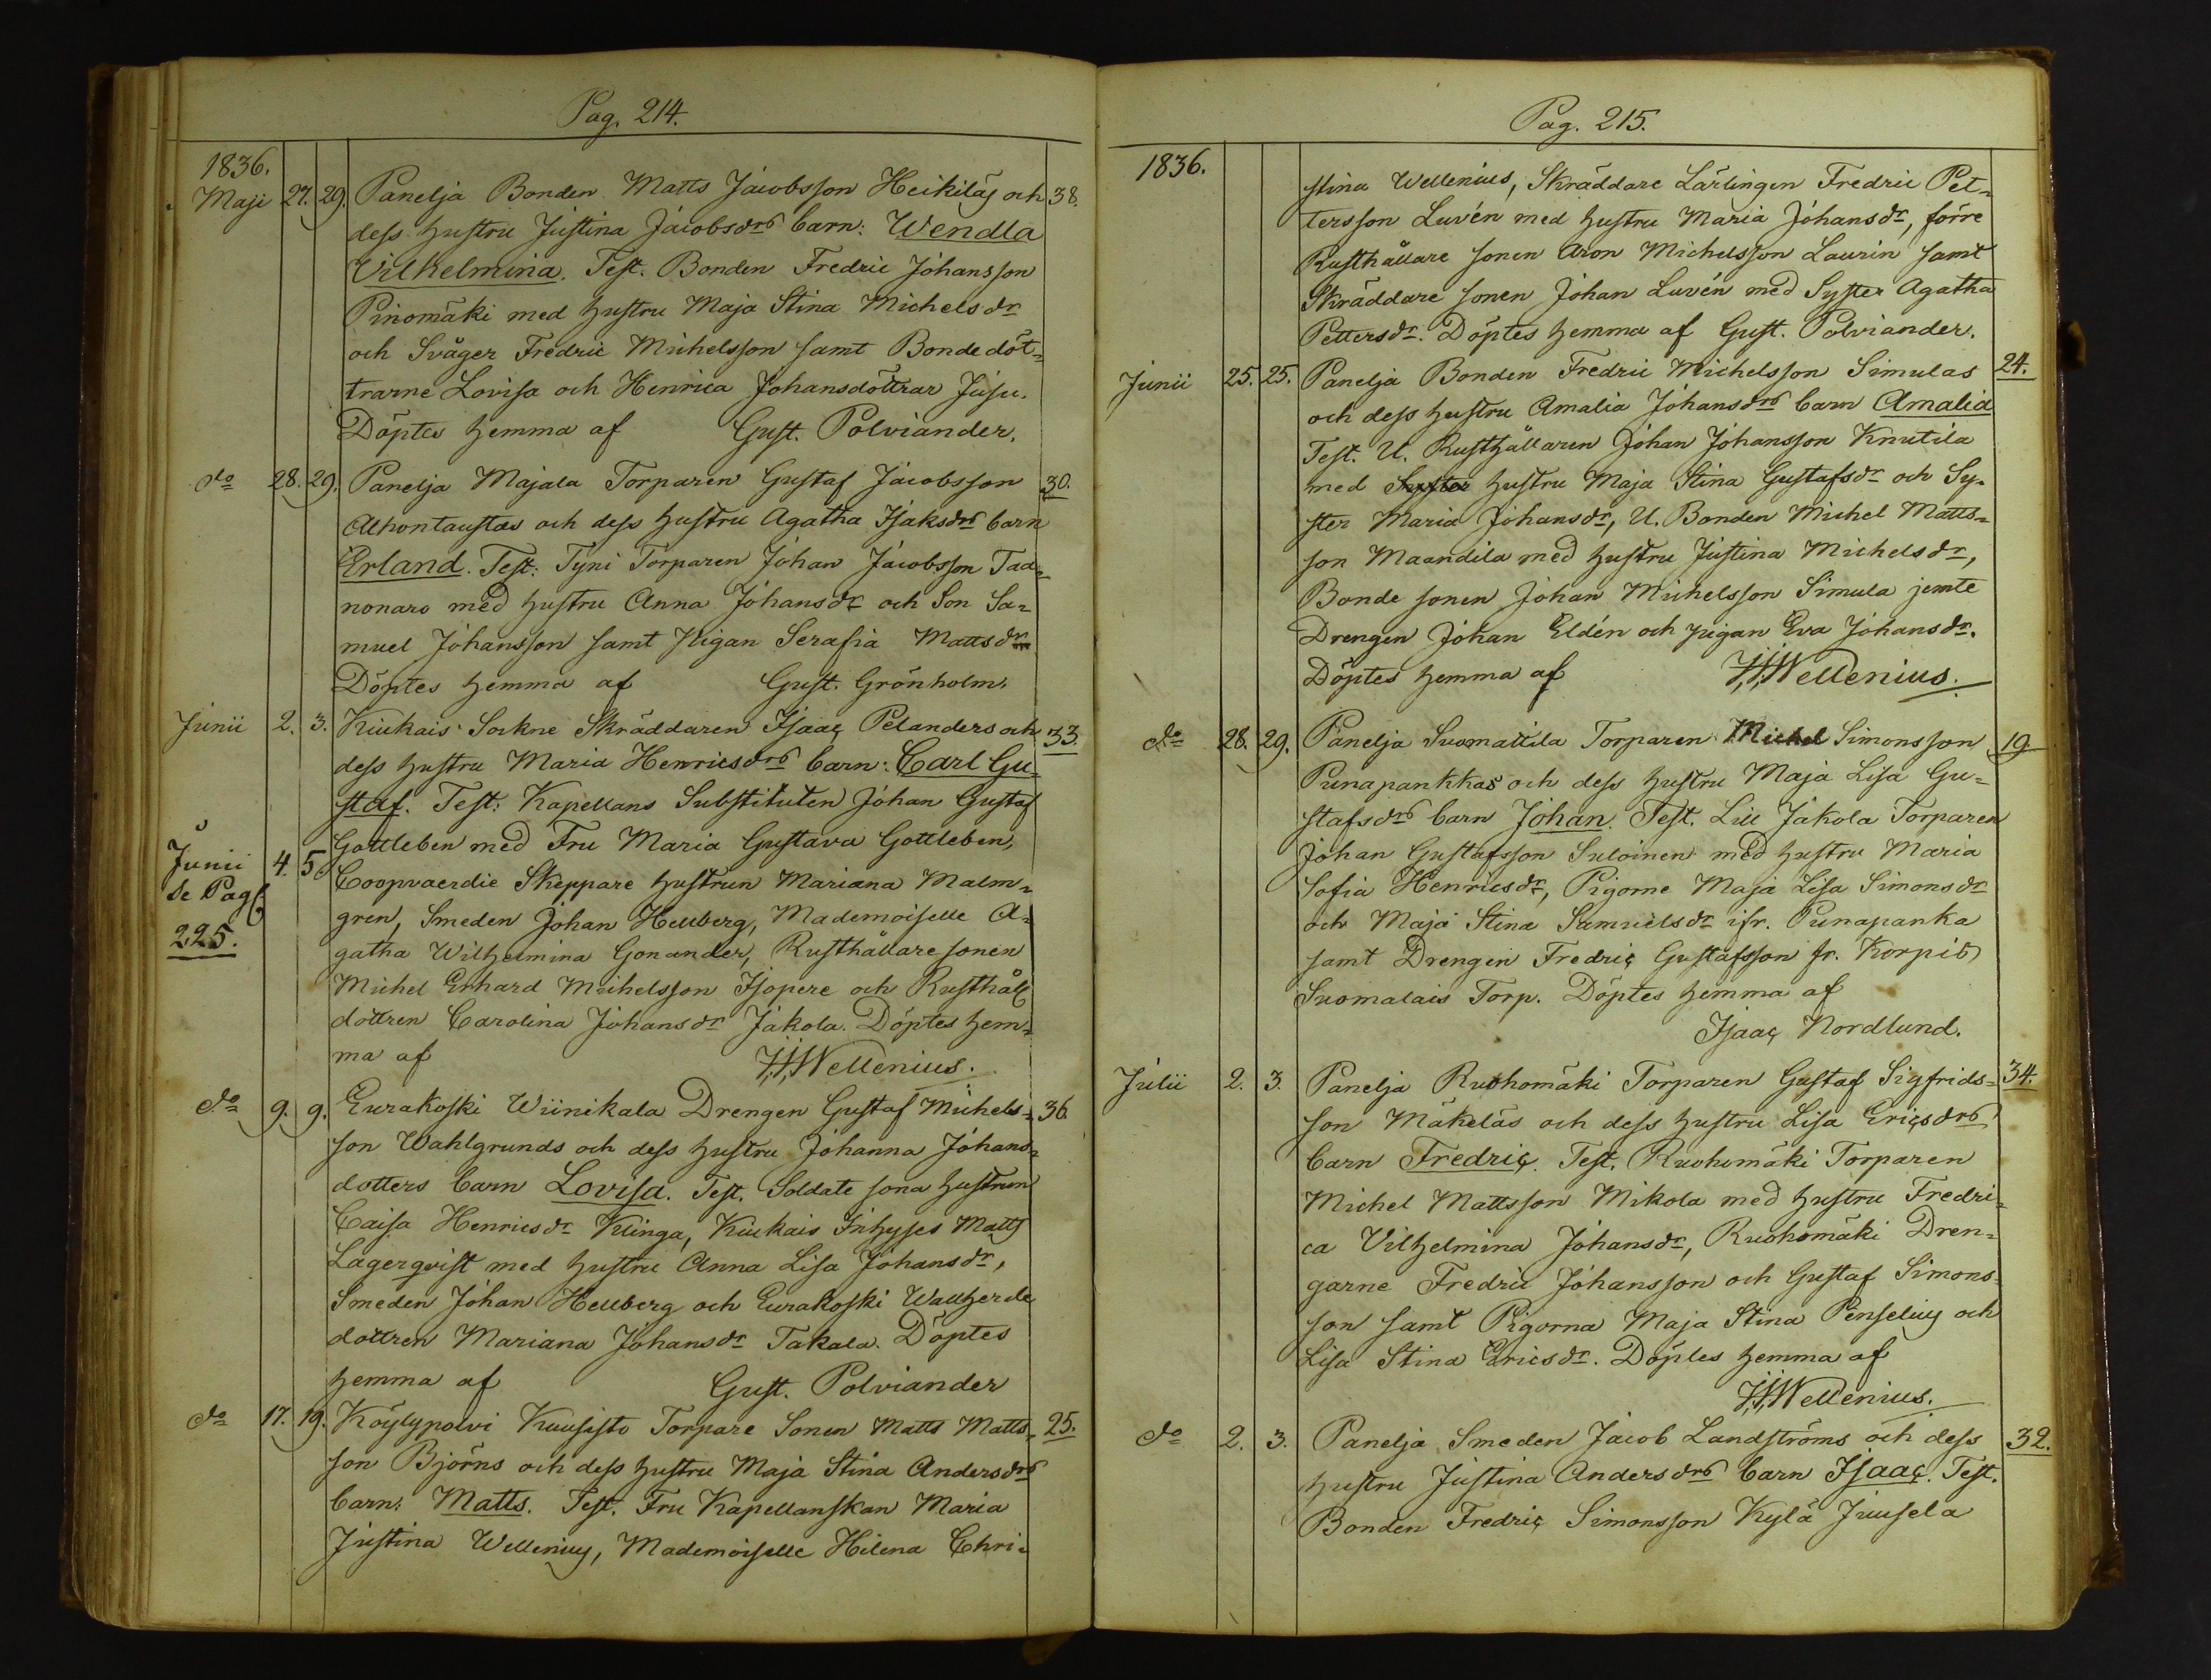 Pag. 214.
1836.
Maji 27. 29. Panelja Bonden Matts Jacobsson Heikiläs och 38.
dess hustru Justina Jacobsdrs barn: Wendla
Vilhelmina. Test. Bonden Fredric Johansson
Pinomäki med hustru Maja Stina Michelsdr
och Svåger Fredric Michelsson samt Bonde döt-
trarne Lovisa och Henrica Johansdöttrar Jusu.
Döptes hemma af Gust. Polviander.
do 28. 29. Panelja Majala Torparen Gustaf Jacobsson 30.
Alhontaustas och dess hustru Agatha Isaksdrs barn
Erland. Test: Tyni Torparen Johan Jacobsson Tad-
nonaro med hustru Anna Johansdr och Son Sa-
muel Johansson samt Pigan Serafia Mattsdr
Döptes hemma af Gust. Grönholm.
Junii 2. 3. Kiukais Sokne Skräddaren Isaac Pelanders och 33.
dess hustru Maria Henricsdrs barn: Carl Gu-
staf. Test: Kapellans Substituten Johan Gustaf
Gottleben med Fru Maria Gustava Gottleben,
Junii 4. 5 Coopvaerdie Skeppare hustrun Mariana Malm-
se Pag.
225.
gren, Smeden Johan Hellberg, Mademoiselle A-
gatha Wilhelmina Gonander, Rusthållare sonen
Michel Erhard Michelsson Isopere och Rusthåll
dottren Carolina Johansdr Jakola. Döptes hem-
ma af J.J. Wellenius.
do 9. 9. Eurakoski Wiinikala Drengen Gustaf Michels- 36
son Wahlgrunds och dess hustru Johanna Johans-
dotters barn Lovisa. Test. Soldate sona hustrun
Caisa Henricsdr Klinga, Kiukais Inhyses Matts
Lagerqvist med hustru Anna Lisa Johansdr,
Smeden Johan Hellberg och Eurakoski Wallherde
dottren Mariana Johansdr Takala. Döptes
hemma af Gust. Polviander
do 17. 19. Köylypolvi Kuusisto Torpare Sonen Matts Matts- 25.
son Björns och dess hustru Maja Stina Andersdrs
barn: Matts. Test. Fru Kapellanskan Maria
Justina Wellenius, Mademoiselle Helena Chri-
Pag. 215.
1836.
stina Wellenius, Skräddare Lärlingen Fredric Pet-
tersson Luvén med hustru Maria Johansdr, förre
Rusthållare sonen Aron Michelsson Laurin samt
Skräddare sonen Johan Luvén med Syster Agatha
Pettersdr. Döptes hemma af Gust. Polviander.
Junii 25. 25. Panelja Bonden Fredric Michelsson Simulas 24.
och dess hustru Amalia Johansdrs barn Amalia
Test. U. Rusthållaren Johan Johansson Knutila
med Syster hustru Maja Stina Gustafsdr och Sy-
ster Maria Johansdr, U. Bonden Michel Matts-
son Maandila med hustru Justina Michelsdr,
Bonde sonen Johan Michelsson Simula jemte
Drengen Johan Eldén och pigan Eva Johansdr.
Döptes hemma af J.J. Wellenius.
do 28. 29. Panelja Suomattila Torparen Michel Simonsson 19
Punapankkas och dess hustru Maja Lisa Gu-
stafsdrs barn Johan. Test. Lill Jakola Torparen
Johan Gustafsson Suloinen med hustru Maria
Sofia Henricsdr, Pigorne Maja Lisa Simonsdr
och Maja Stina Samuelsdr ifr. Punapanka
samt Drengen Fredric Gustafsson fr. Korpis
Suomalais Torp. Döptes hemma af
Isaac Nordlund.
Julii 2. 3. Panelja Ruohomäki Torparen Gustaf Sigfrids- 34.
son Mäkeläs och dess hustru Lisa Ericsdrs
barn Fredric. Test. Ruohomäki Torparen
Michel Mattsson Mikola med hustru Fredri-
ca Vilhelmina Johansdr, Ruohomäki Dren-
garne Fredric Johansson och Gustaf Simons-
son samt Pigorna Maja Stina Penselius och
Lisa Stina Ericsdr. Döptes hemma af
J.J. Wellenius.
do 2. 3. Panelja Smeden Jacob Landströms och dess 32.
hustru Justina Andersdrs barn Isaac. Test.
Bonden Fredric Simonsson Kylä Juusela